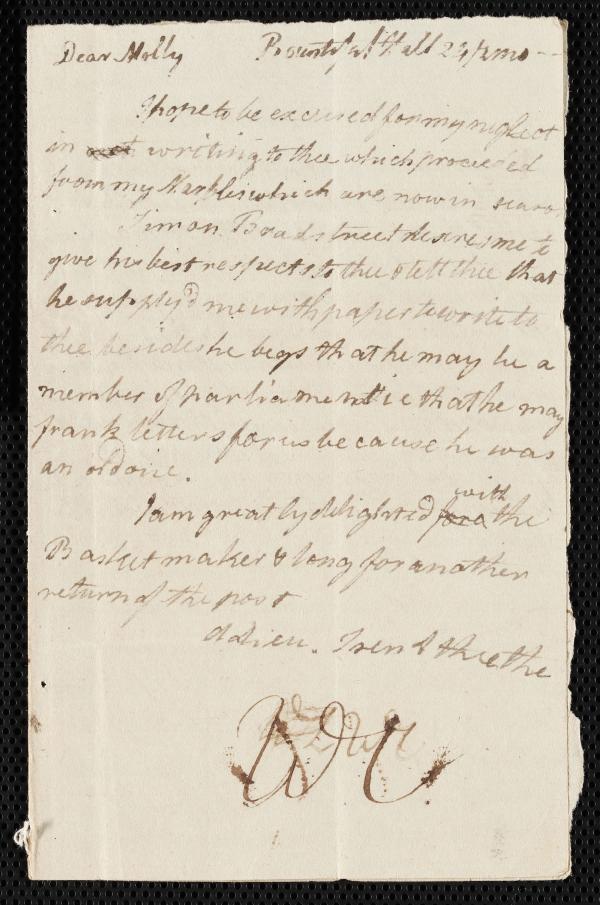 Dear Molly Bountiful Hall 23/2mo
I hope to be excused for my neglect
in writing to thee which proceeded
from my Marbles which are now in seaso
Simon Bradstreet desires me to
give his best respects to thee & tell thee that
he supply'd me with paper to write to
thee besides he begs that he may be a
member of parliament i e that he may
frank letters for us because he was
an old one.
I am greatly delighted with the
Basket maker & long for another
return of the post
Adieu. I send thee the